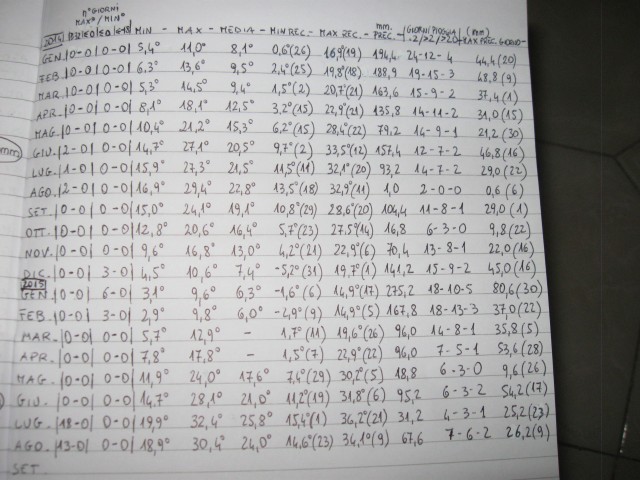 n° GIORNI
MAX° / MIN°
mm.
2014 MIN - MAX - MEDIA - MIN REC. - MAX REC. - PREC. - (GIORNI PIOGGIA (mm)
GEN. |0-0| 0-0| 5,4° 11,0° 8,1° 0,6°(26) 16,9°(19) 194,4 24-12-4 44,4 (20)
FEB. |0-0| 0-0| 6,3° 13,6° 9,5° 2,4°(25) 19,8°(18) 188,9 19-15-3 48,8 (9)
MAR. |0-0| 0-0| 5,3° 14,5° 9,4° 1,5°(2) 20,7°(21) 163,6 15-9-2 37,4 (1)
APR. |0-0| 0-0| 8,1° 18,1° 12,5° 3,2°(15) 22,9°(21) 135,8 14-11-2 31,0 (15)
MAG. |0-0| 0-0| 10,4° 21,2° 15,3° 6,2°(15) 28,4°(22) 79,2 14-9-1 21,2 (30)
mm)
GIU. |2-0| 0-0| 14,7° 27,1° 20,5° 9,7°(2) 33,5°(12) 157,4 12-7-2 46,8 (16)
LUG. |1-0| 0-0| 15,9° 27,3° 21,5° 11,5°(11) 32,1°(20) 93,2 14-7-2 29,0 (22)
AGO. |2-0| 0-0| 16,9° 29,4° 22,8° 13,5°(18) 32,9°(11) 1,0 2-0-0 0,6 (6)
SET. |0-0| 0-0| 15,0° 24,1° 19,1° 10,8°(29) 28,6°(20) 104,4 11-8-1 29,0 (1)
OTT. |0-0| 0-0| 12,8° 20,6° 16,4° 5,7°(23) 27.5°(14) 16,8 6-3-0 9,8 (22)
NOV. |0-0| 0-0| 9,6° 16,8° 13,0° 4,2°(21) 22,9°(6) 70,4 13-8-1 22,0 (16)
DIC. |0-0| 3-0| 4,5° 10,6° 7,4° -5,2°(31) 19,7°(1) 141,2 15-9-2 45,0 (16)
2015
GEN |0-0| 6-0| 3,1° 9,6° 6,3° -1,6°(6) 14,9°(17) 275,2 18-10-5 80,6 (30)
FEB. |0-0| 3-0| 2,9° 9,8° 6,0° -2,9°(9) 14,9°(5) 167,8 18-13-3 37,0 (22)
MAR. |0-0| 0-0| 5,7° 12,9° - 1,7°(11) 19,6°(26) 96,0 14-8-1 35,8 (5)
APR. |0-0| 0-0| 7,8° 17,8° - 1,5°(7) 22,9°(22) 96,0 7-5-1 53,6 (28)
MAG. |0-0| 0-0| 11,9° 24,0° 17,6° 7,4°(29) 30,2°(5) 18,8 6-3-0 9,6 (26)
GIU. |0-0| 0-0| 14,7° 28,1° 21,0° 11,2°(19) 31,8°(6) 95,2 6-3-2 54,2 (17)
LUG. |18-0| 0-0| 19,9° 32,4° 25,8° 15,4°(1) 36,2°(21) 31,2 4-3-1 25,2 (23)
AGO. |13-0| 0-0| 18,9° 30,4° 24,0° 14,6°(23) 34,1°(9) 67,6 7-6-2 26,2 (9)
SET.